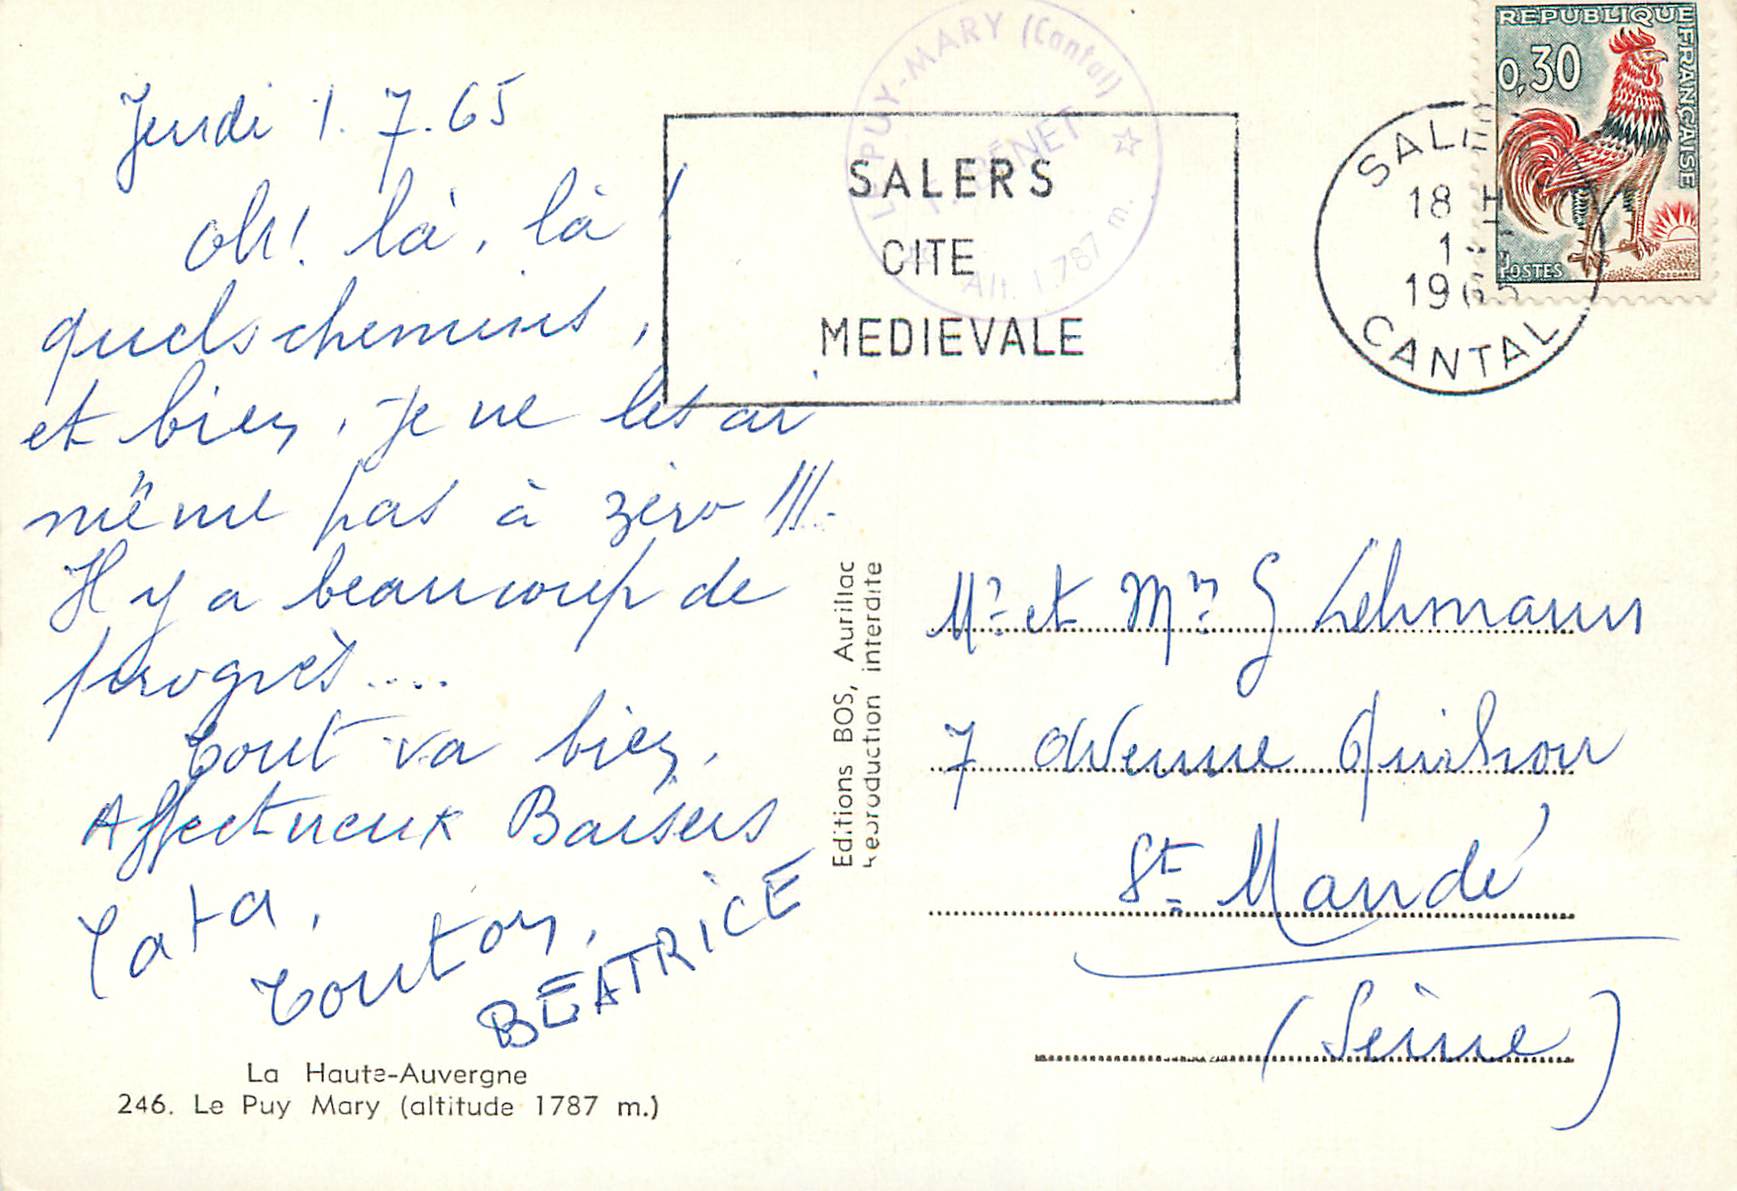 Jeudi 1.7.65
oh! là, là !
quels chemins,
et bien, je ne les ai
même pas à zéro !!!.
Il y a beaucoup de
progrès....
Tout va bien,
Affectueux Baisers
Tata,
Touton,
BEATRICE
La Haute-Auvergne
246. Le Puy Mary (altitude 1787 m.)
Editions BOS, Aurillac
Reproduction interdite
LE PUY-MARY (Cantal)
Alt. 1.787 m.
SALERS
CITE
MEDIEVALE
SALERS
18 H
1
1965
CANTAL
REPUBLIQUE
FRANÇAISE
0,30
POSTES
Mr et Mme G Lehmann
7 Avenue Quihou
St Mandé
(Seine)